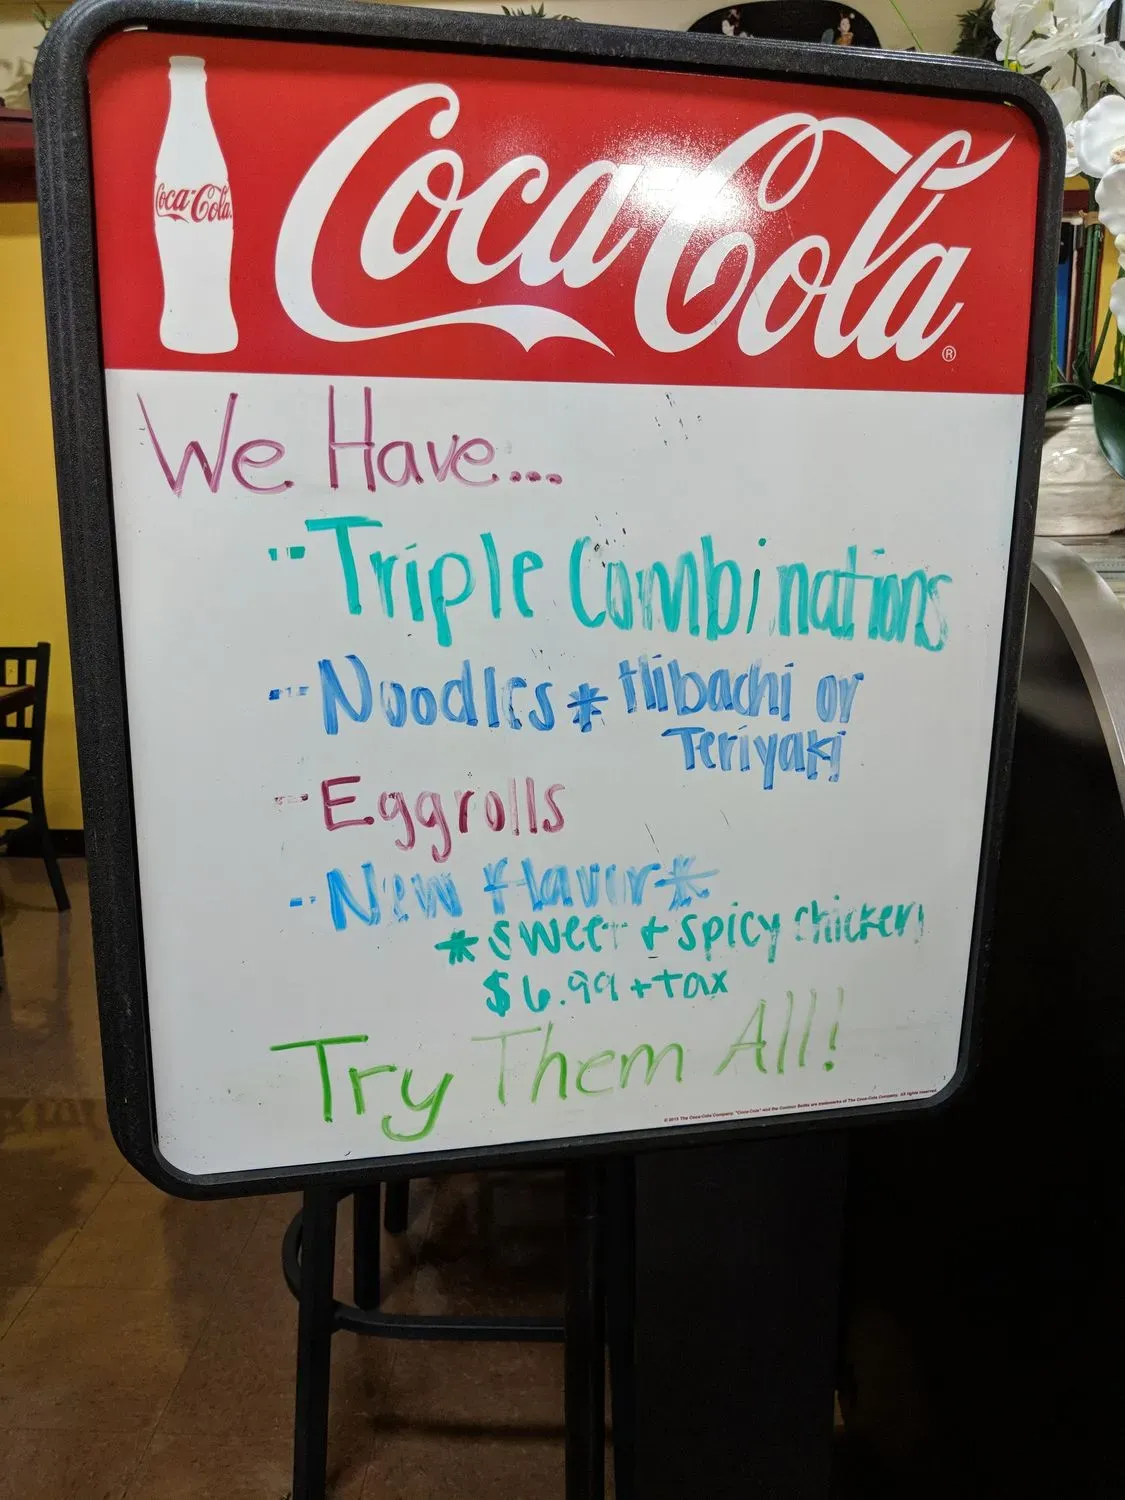 Coca-Cola
Coca-Cola®
We Have...
-- Triple Combinations
-- Noodles * Hibachi or
Teriyaki
-- Eggrolls
-- New flavor *
* sweet + spicy chicken
$6.99 + tax
Try Them All!
© 2015 The Coca-Cola Company. "Coca-Cola" and the Contour Bottle are trademarks of The Coca-Cola Company. All rights reserved.